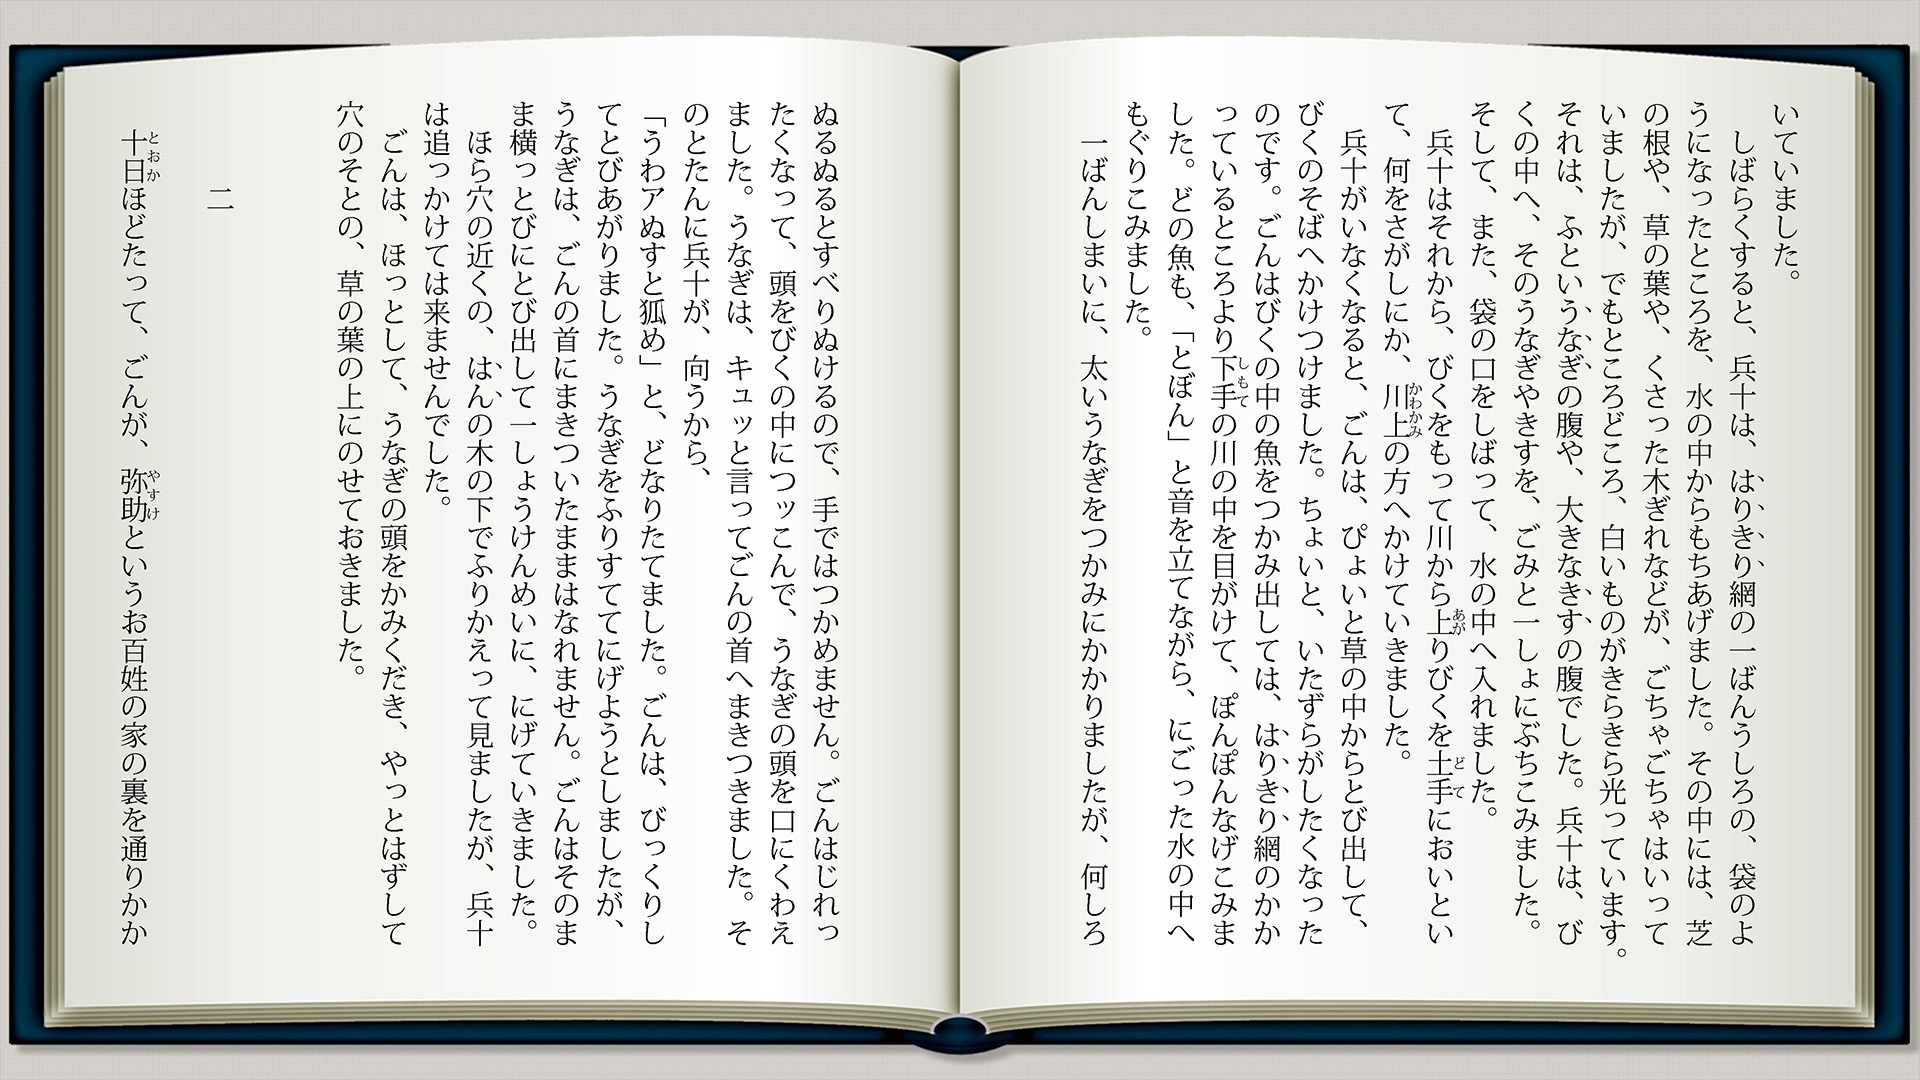 いていました。
　しばらくすると、兵十は、はりきり網の一ばんうしろの、袋のよ
うになったところを、水の中からもちあげました。その中には、芝
の根や、草の葉や、くさった木ぎれなどが、ごちゃごちゃはいって
いましたが、でもところどころ、白いものがきらきら光っています。
それは、ふというなぎの腹や、大きなきすの腹でした。兵十は、び
くの中へ、そのうなぎやきすを、ごみと一しょにぶちこみました。
そして、また、袋の口をしばって、水の中へ入れました。
　兵十はそれから、びくをもって川から上りびくを土手においとい
て、何をさがしにか、川上の方へかけていきました。
　兵十がいなくなると、ごんは、ぴょいと草の中からとび出して、
びくのそばへかけつけました。ちょいと、いたずらがしたくなった
のです。ごんはびくの中の魚をつかみ出しては、はりきり網のかか
っているところより下手の川の中を目がけて、ぽんぽんなげこみま
した。どの魚も、「とぼん」と音を立てながら、にごった水の中へ
もぐりこみました。
　一ばんしまいに、太いうなぎをつかみにかかりましたが、何しろ
ぬるぬるとすべりぬけるので、手ではつかめません。ごんはじれっ
たくなって、頭をびくの中につッこんで、うなぎの頭を口にくわえ
ました。うなぎは、キュッと言ってごんの首へまきつきました。そ
のとたんに兵十が、向うから、
「うわアぬすと狐め」と、どなりたてました。ごんは、びっくりし
てとびあがりました。うなぎをふりすててにげようとしましたが、
うなぎは、ごんの首にまきついたままはなれません。ごんはそのま
ま横っとびにとび出して一しょうけんめいに、にげていきました。
　ほら穴の近くの、はんの木の下でふりかえって見ましたが、兵十
は追っかけては来ませんでした。
　ごんは、ほっとして、うなぎの頭をかみくだき、やっとはずして
穴のそとの、草の葉の上にのせておきました。
二
　十日ほどたって、ごんが、弥助というお百姓の家の裏を通りかか